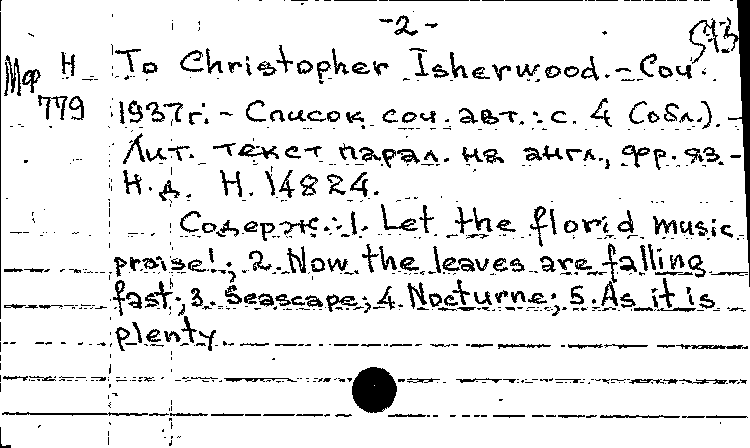 -2-
593
Мф Н To Christopher Isherwood. - Соч.
779 1937г. - Список соч. авт.: с. 4 (обл.). -
Лит. текст парал. на англ., фр. яз. -
Н.д. Н. 14824.
Содерж.: 1. Let the florid music
praise!; 2. Now the leaves are falling
fast; 3. Seascape; 4. Nocturne; 5. As it is
plenty.